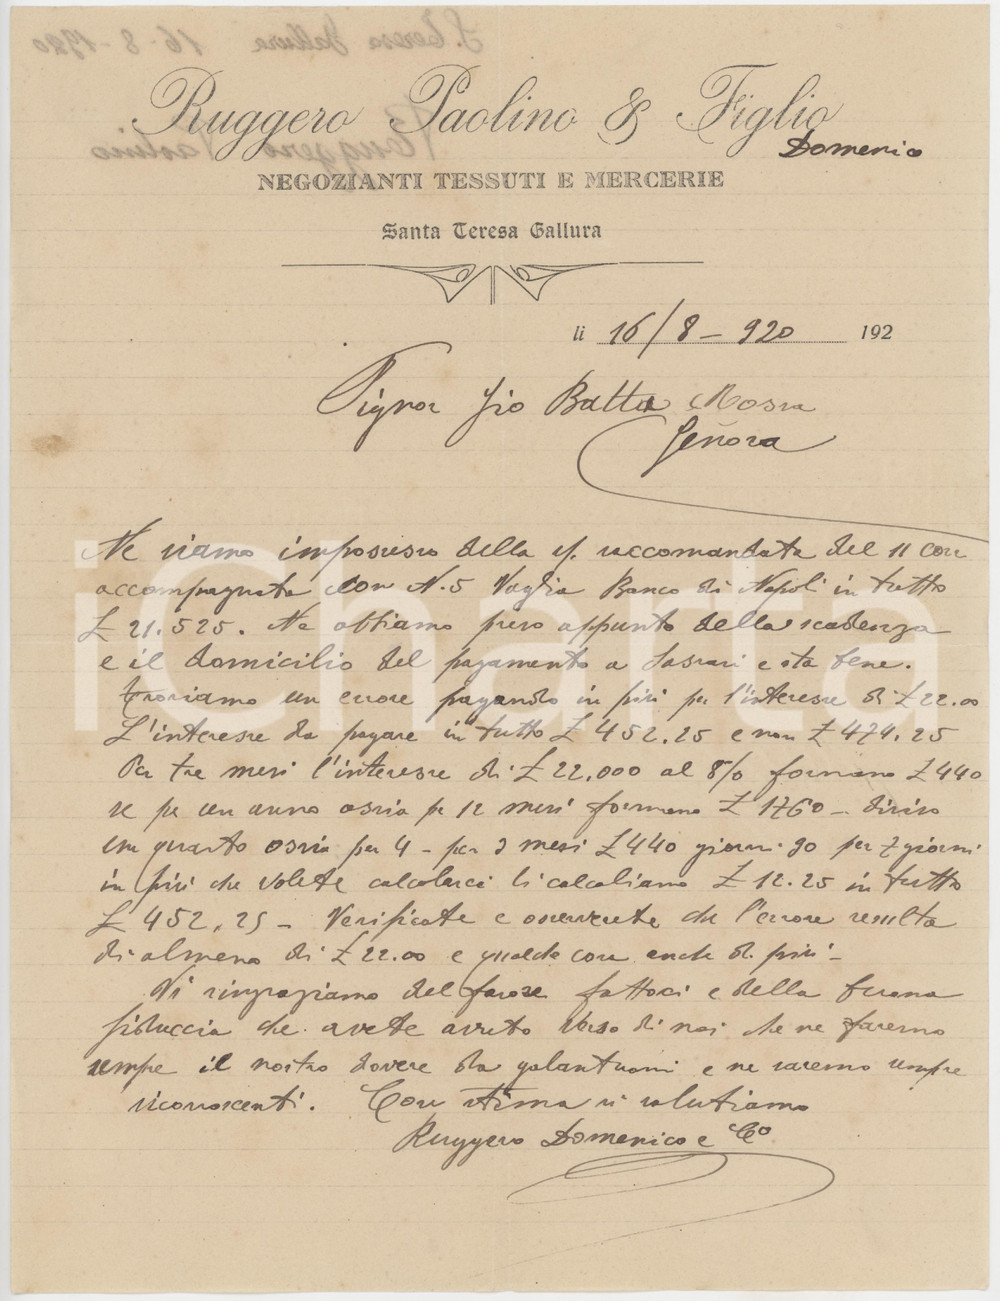 S. Teresa Gallura 16-8-1920
Ruggero Paolino & Figlio
Ruggero Paolino
Domenico
NEGOZIANTI TESSUTI E MERCERIE
Santa Teresa Gallura
li 16/8-920 192
Signor Gio Batta Mossa
Genova
Ne siamo impossesso della raccomandata del 11 corr
accompagnata con N. 5 Vaglia Banco di Napoli in tutto
£ 21.525. Ne abbiamo preso appunto della scadenza
e il domicilio del pagamento a Sassari e sta bene.
troviamo un errore pagando in più per l'interesse di £ 22.00
L'interesse da pagare in tutto £ 452.25 e non £ 474.25
Per tre mesi l'interesse di £ 22,000 al 8% formano £ 440
se per un anno ossia per 12 mesi formano £ 1760 - diviso
un quarto ossia per 4 - per 3 mesi £ 440 giorni 90 per 7 giorni
in più che volete calcolarci li calcoliamo £ 12.25 in tutto
£ 452,25 - Verificate e osservrete che l'errore resulta
di almeno di £ 22.00 e qualche cosa anche di più -
Vi ringraziamo del favore fattoci e della buona
fiduccia che avete avuto verso di noi che ne faremo
sempre il nostro dovere da galantuomi e ne saremo sempre
riconoscenti. Con stima vi salutiamo
Ruggero Domenico e Co
iCharta